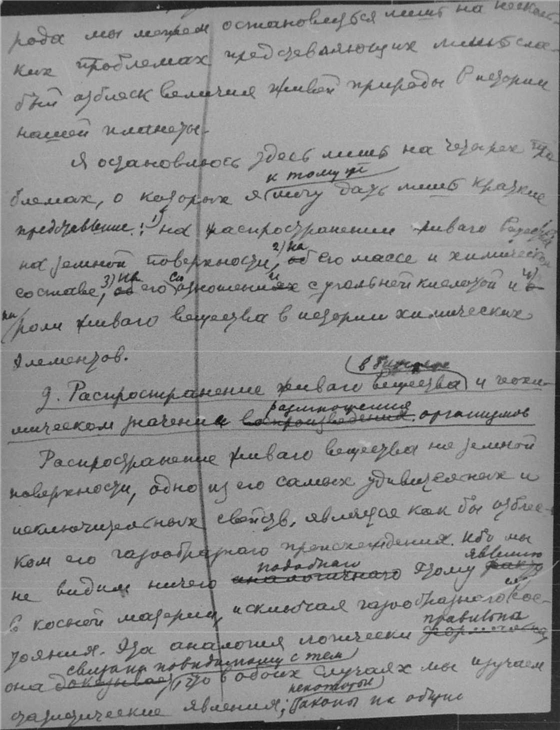 рода мы можем остановиться лишь на несколь-
ких проблемах представляющих лишь сла-
бый отблеск величия живой природы в истории
нашей планеты.
Я остановлюсь здесь лишь на четырех про
блемах, о которых я к тому же могу дать лишь краткие
представление: 1) на распространении живаго вещества
на земной поверхности, 2) на его массе и химическом
составе, 3) на его соотношении с угольной кислотой и 4)
роли живаго вещества в истории химических
элементов.
9. Распространение живаго вещества и геохи-
мическом значении воспроизведения размножения организмов
Распространение живаго вещества на земной
поверхности, одно из его самых удивительных и
исключительных свойств, является как бы отблес-
ком его газообразного происхождения. Ибо мы
не видим ничего аналогичного подобнаго этому явлению
в косной материи, исключая газообразнаго сос-
тояния. Эта аналогия логически правильна
она связана повидимому с тем что в обоих случаях мы изучаем
статистические явления; некоторые законы по общие